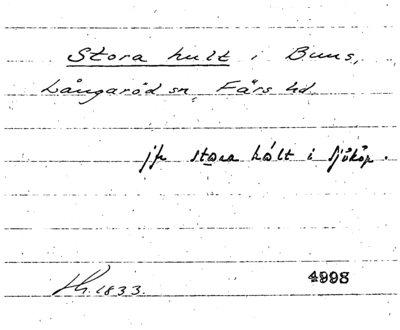 Stora hult i Buus,
Långaröd sn, Färs hd.
jfr stora hólt i Sjököp.
1833.
4998